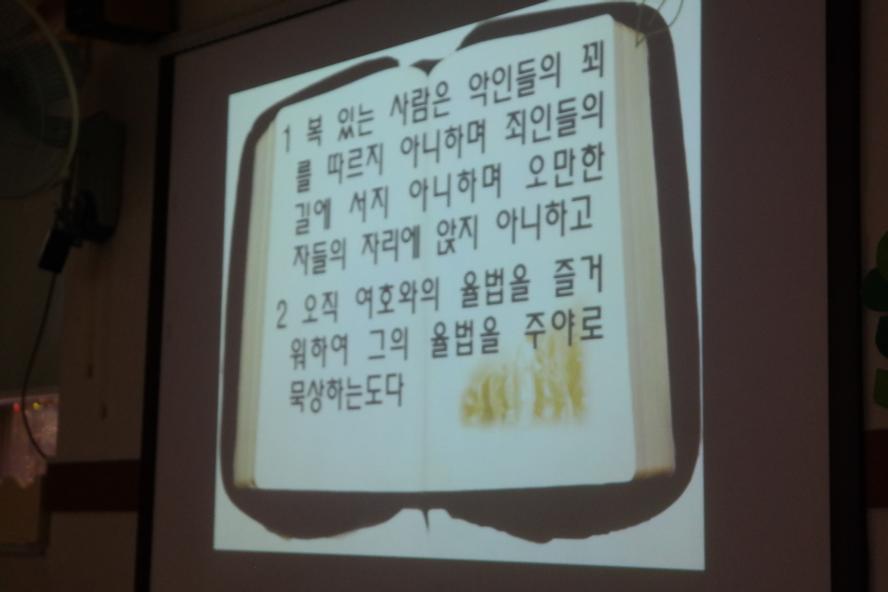 1 복 있는 사람은 악인들의 꾀
를 따르지 아니하며 죄인들의
길에 서지 아니하며 오만한
자들의 자리에 앉지 아니하고
2 오직 여호와의 율법을 즐거
워하여 그의 율법을 주야로
묵상하는도다